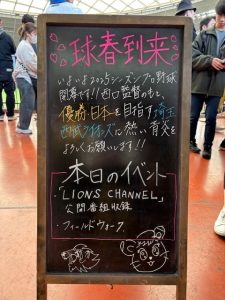 球春到来
いよいよ2025シーズンプロ野球
開幕です!!西口監督のもと、
優勝・日本一を目指す埼玉
西武ライオンズに熱い声援を
よろしくお願いします!!
本日のイベント
・「LIONS CHANNEL」
公開番組収録
・フィールドウォーク